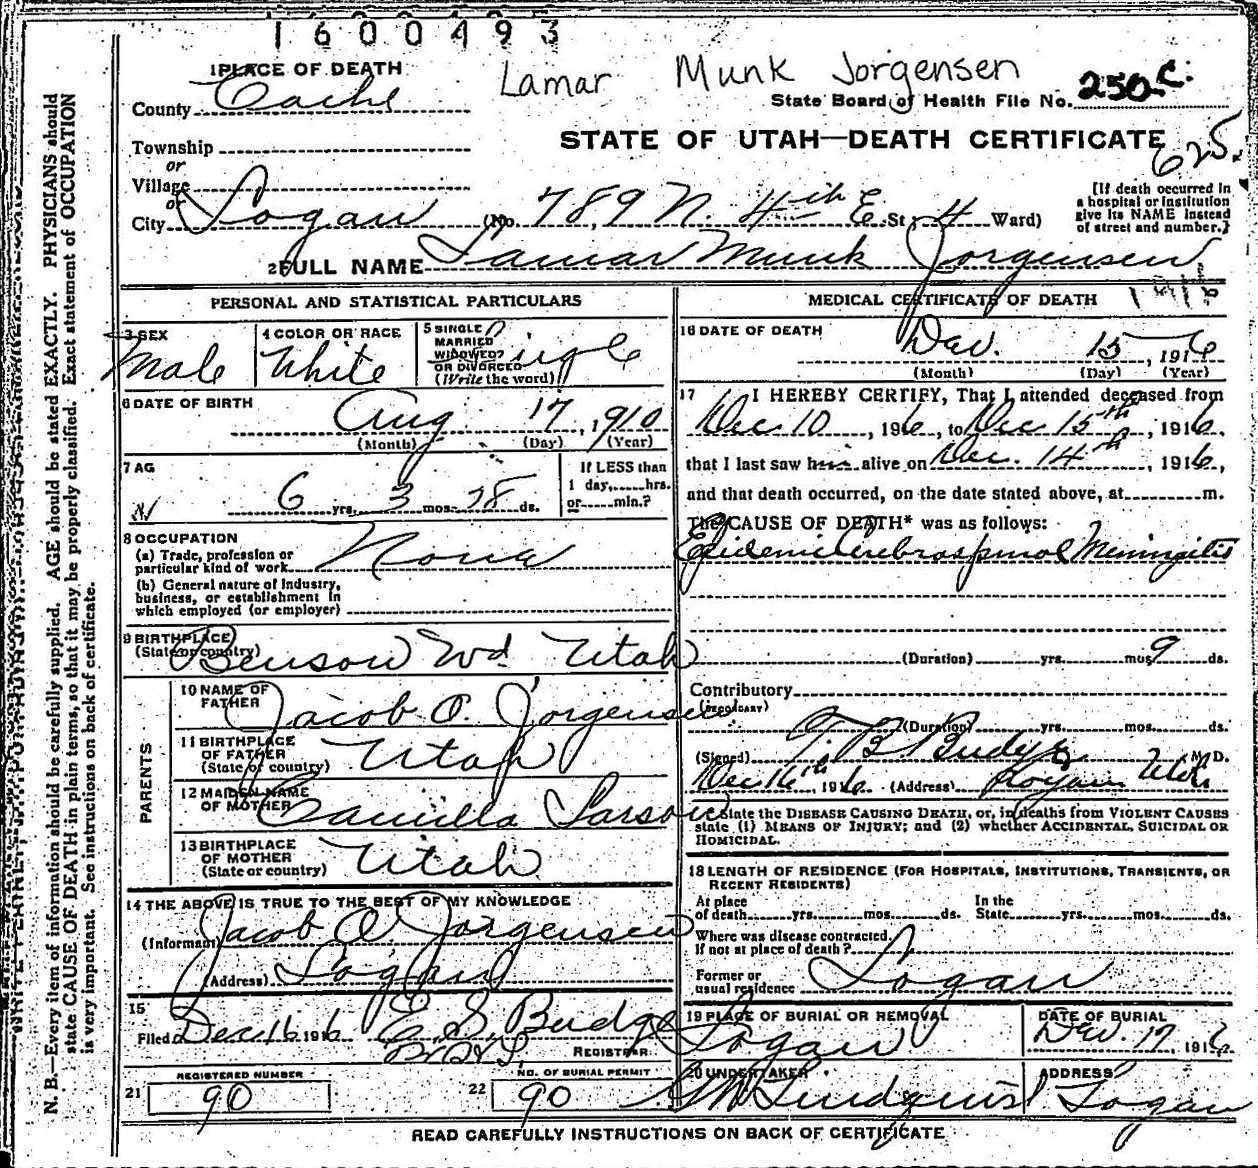 1600493
1 PLACE OF DEATH
Lamar Munk Jorgensen
County Cache
State Board of Health File No. 250 C.
Township
STATE OF UTAH—DEATH CERTIFICATE
or
625.
Village
or
City Logan (No. 789 N. 4th E. St; 4 Ward)
[If death occurred in
a hospital or institution
give its NAME instead
of street and number.]
2 FULL NAME Lamar Munk Jorgensen
PERSONAL AND STATISTICAL PARTICULARS
3 SEX
Male
4 COLOR OR RACE
White
5 SINGLE
MARRIED
WIDOWED?
OR DIVORCED
(Write the word)
Single
6 DATE OF BIRTH
Aug 17, 1910
(Month) (Day) (Year)
7 AG
6 yrs. 3 mos. 28 ds.
If LESS than
1 day,......hrs.
or......min.?
8 OCCUPATION
(a) Trade, profession or
particular kind of work None
(b) General nature of Industry,
business, or establishment in
which employed (or employer)
9 BIRTHPLACE
(State or country) Benson Wd. Utah
PARENTS
10 NAME OF
FATHER Jacob O. Jorgensen
11 BIRTHPLACE
OF FATHER
(State or country) Utah
12 MAIDEN NAME
OF MOTHER Camilla Larson
13 BIRTHPLACE
OF MOTHER
(State or country) Utah
14 THE ABOVE IS TRUE TO THE BEST OF MY KNOWLEDGE
(Informant) Jacob O Jorgensen
(Address) Logan
15
Filed Dec 16 1916 E. S. Budge
REGISTRAR
REGISTERED NUMBER
21 90
NO. OF BURIAL PERMIT
22 90
MEDICAL CERTIFICATE OF DEATH 1916
16 DATE OF DEATH
Dec. 15, 1916
(Month) (Day) (Year)
17 I HEREBY CERTIFY, That I attended deceased from
Dec 10, 1916, to Dec 15th, 1916,
that I last saw him alive on Dec. 14th, 1916,
and that death occurred, on the date stated above, at m.
The CAUSE OF DEATH* was as follows:
Epidemic Cerebrospinal Meningitis
(Duration) yrs. mos. 9 ds.
Contributory
(SECONDARY)
(Duration) yrs. mos. ds.
(Signed) T. B. Budge M. D.
Dec 16th, 1916 (Address) Logan Utah
State the DISEASE CAUSING DEATH, or, in deaths from VIOLENT CAUSES
state (1) MEANS OF INJURY; and (2) whether ACCIDENTAL, SUICIDAL OR
HOMICIDAL.
18 LENGTH OF RESIDENCE (FOR HOSPITALS, INSTITUTIONS, TRANSIENTS, OR
RECENT RESIDENTS)
At place
of death yrs. mos. ds.
In the
State yrs. mos. ds.
Where was disease contracted
If not at place of death?
Former or
usual residence Logan
19 PLACE OF BURIAL OR REMOVAL
Logan
DATE OF BURIAL
Dec. 17, 1916
20 UNDERTAKER
Lindquist
ADDRESS
Logan
READ CAREFULLY INSTRUCTIONS ON BACK OF CERTIFICATE
N. B.—Every item of information should be carefully supplied. AGE should be stated EXACTLY. PHYSICIANS should
state CAUSE OF DEATH in plain terms, so that it may be properly classified. Exact statement of OCCUPATION
is very important. See instructions on back of certificate.